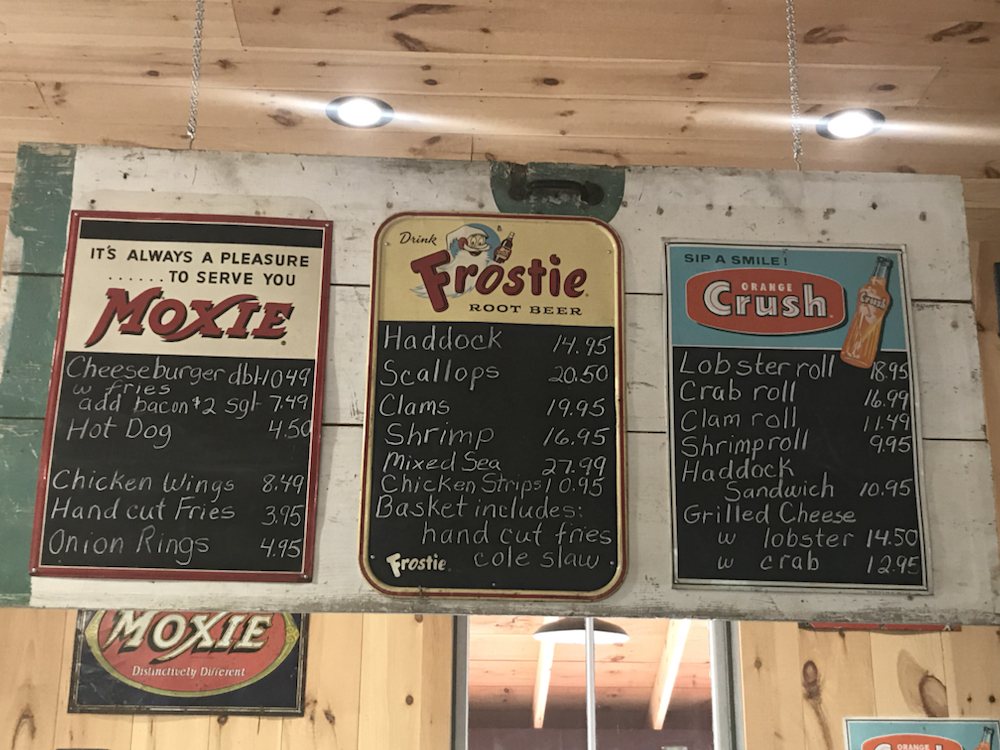 IT'S ALWAYS A PLEASURE
......TO SERVE YOU
MOXIE
Cheeseburger dbl-1049
w fries
add bacon $2 sgl- 7.49
Hot Dog 4.50
Chicken Wings 8.49
Hand cut Fries 3.95
Onion Rings 4.95
Drink
Frostie
ROOT BEER
Haddock 14.95
Scallops 20.50
Clams 19.95
Shrimp 16.95
Mixed Sea 27.99
Chicken Strips 10.95
Basket includes:
hand cut fries
Frostie cole slaw
SIP A SMILE!
ORANGE
Crush
Crush
Lobster roll 18.95
Crab roll 16.99
Clam roll 11.49
Shrimp roll 9.95
Haddock
Sandwich 10.95
Grilled Cheese
w lobster 14.50
w crab 12.95
MOXIE
Distinctively Different
ORANGE
Crush